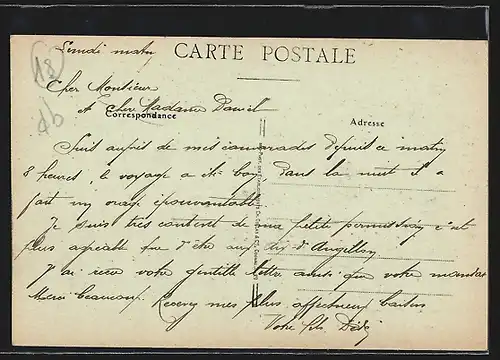 Lundi matin CARTE POSTALE
18
Cher Monsieur
et Chère Madame Daniel
Correspondance Adresse
Suis auprès de mes camarades depuis ce matin
8 heures, le voyage a été bon, dans la nuit il a
fait un orage épouvantable
Je suis très content de ma petite permission c'est
plus agréable que d'être aux d'Angillon
J'ai recu votre gentille lettre ainsi que votre mandat
Merci beaucoup. Recevez mes plus affectueux baisers
Votre fils Dédé